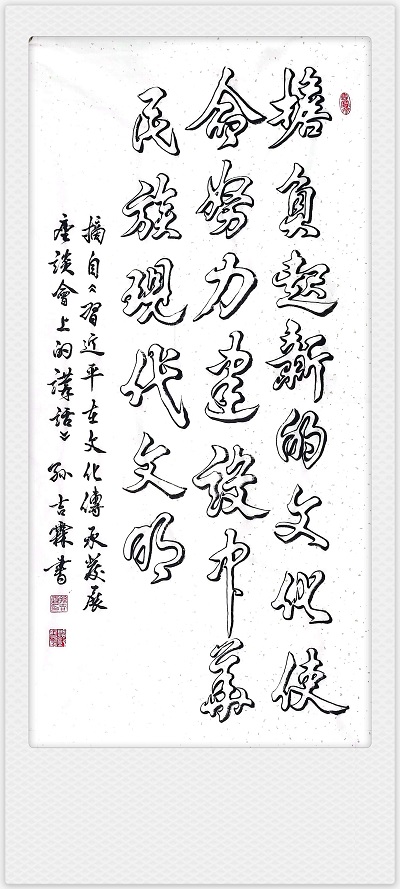 擔負起新的文化使
命努力建设中華
民族現代文明
摘自《習近平在文化傳承發展
座談會上的講話》 孙吉霖書